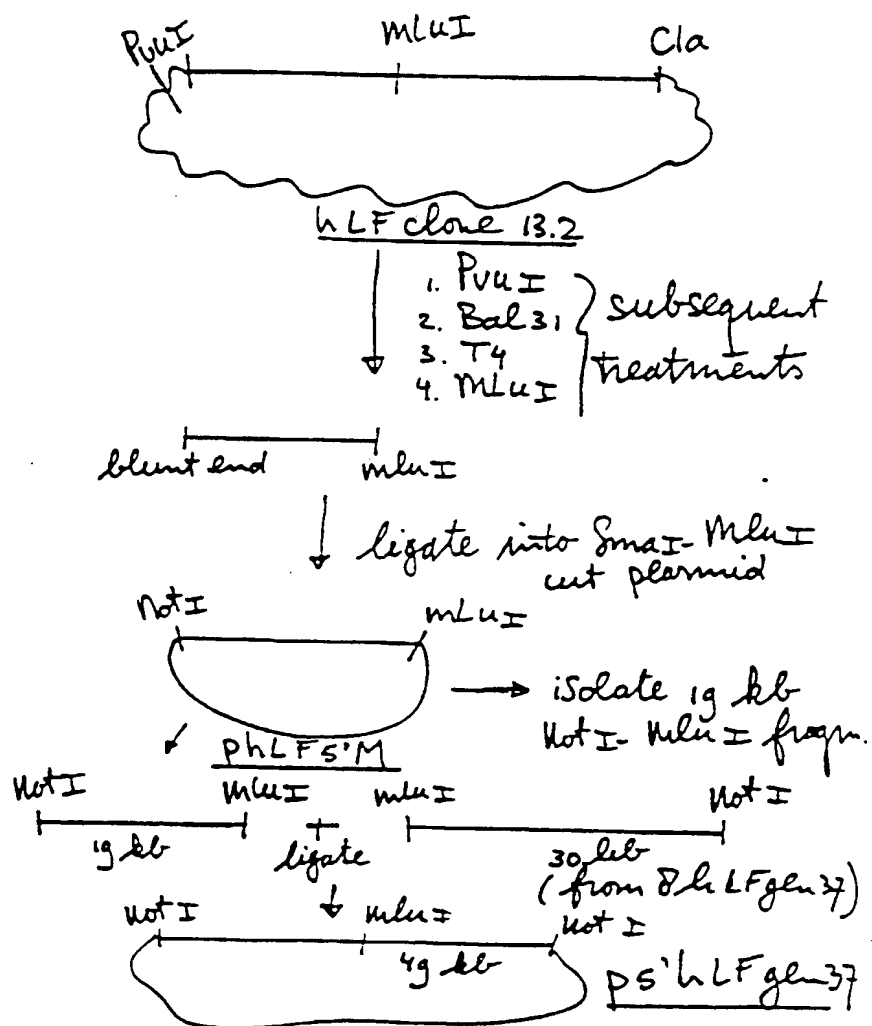 PvuI mluI Cla
hLF clone 13.2
1. PvuI
2. Bal31
3. T4
4. MLuI
subsequent
treatments
blunt end mluI
ligate into SmaI-MluI
cut plasmid
notI mLuI
isolate 19 kb
NotI-MluI fragm.
phLF5'M
NotI MluI mluI NotI
19 kb ligate 30 kb
(from 8hLFgen37)
notI mluI NotI
49 kb
p5'hLFgen37